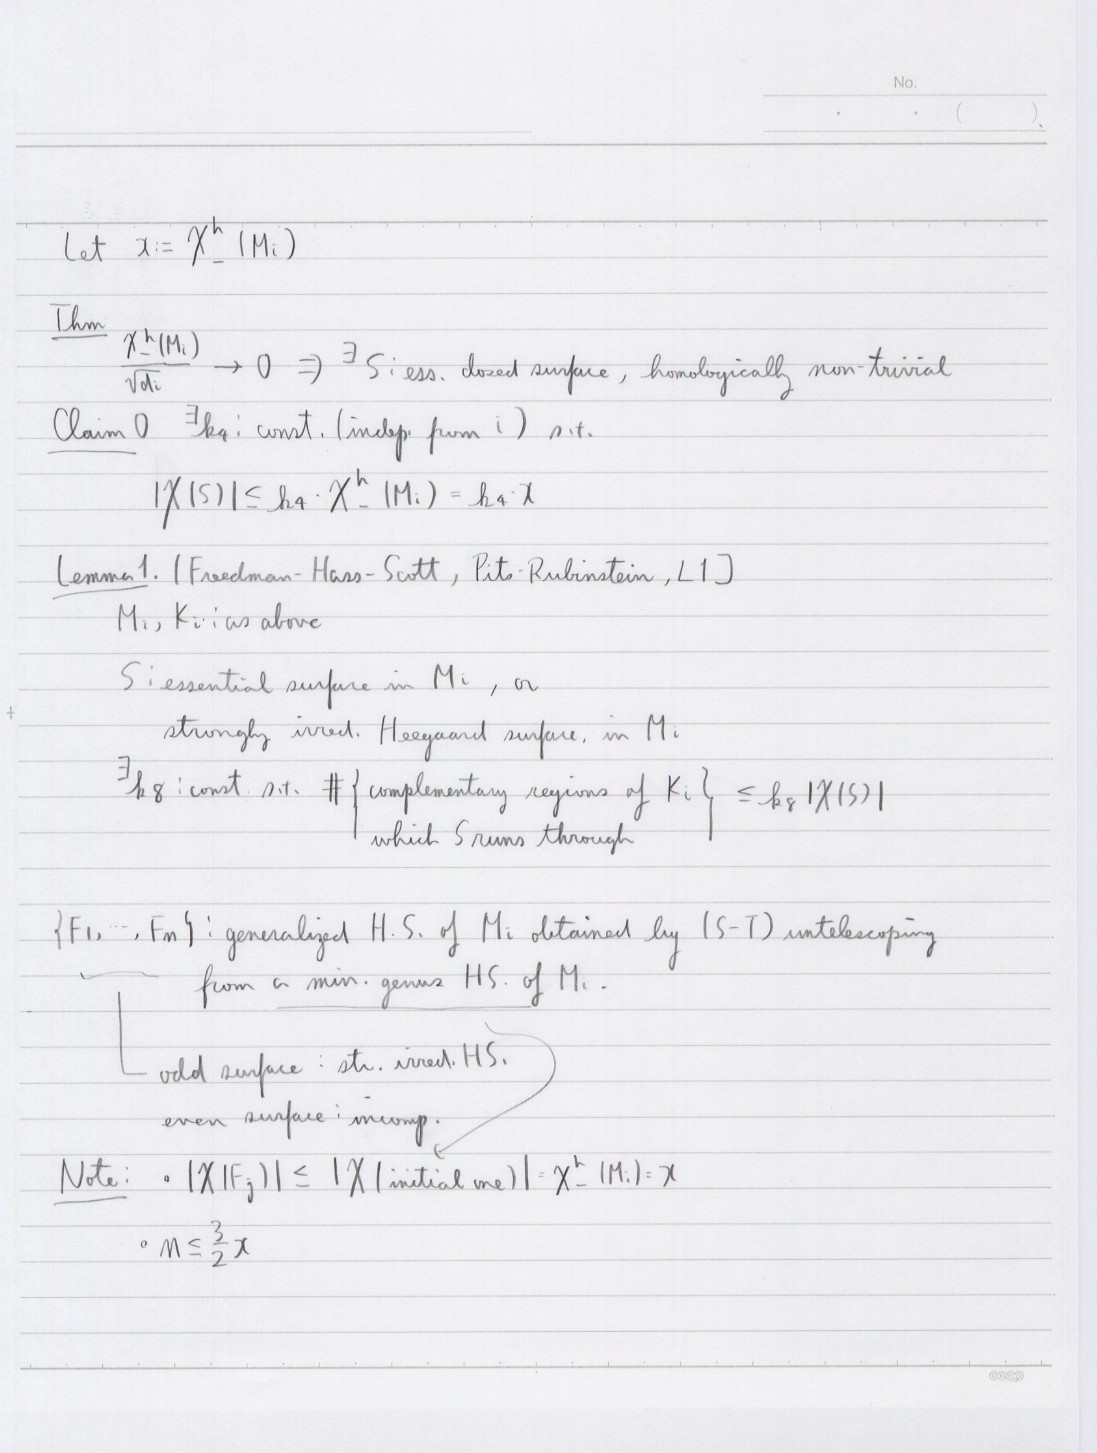 No.
( )
Let x := χ_-^h (M_i)
Thm
χ_-^h (M_i) / √d_i → 0 ⇒ ∃ S : ess. closed surface, homologically non-trivial
Claim 0 ∃k_4 : const. (indep. from i) s.t.
|χ(S)| ≤ k_4 · χ_-^h (M_i) = k_4 · x
Lemma 1. [Freedman-Hass-Scott, Pits-Rubinstein, L1]
M_i, K_i : as above
S : essential surface in M_i, or
strongly irred. Heegaard surface, in M_i
∃k_8 : const. s.t. # { complementary regions of K_i } ≤ k_8 |χ(S)|
which S runs through
{F_1, ..., F_n} : generalized H.S. of M_i obtained by (S-T) untelescoping
from a min. genus HS. of M_i.
odd surface : str. irred. HS.
even surface : incomp.
Note: • |χ(F_j)| ≤ |χ(initial one)| = χ_-^h (M_i) = x
• n ≤ 3/2 x
coop